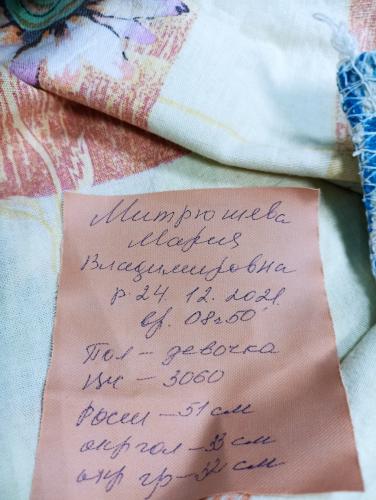 Митрюшева
Мария
Владимировна
р. 24. 12. 2021.
вр. 08ч50'
Пол – девочка
Вес – 3060
Рост – 51 см
окр гол – 33 см
окр гр – 32 см